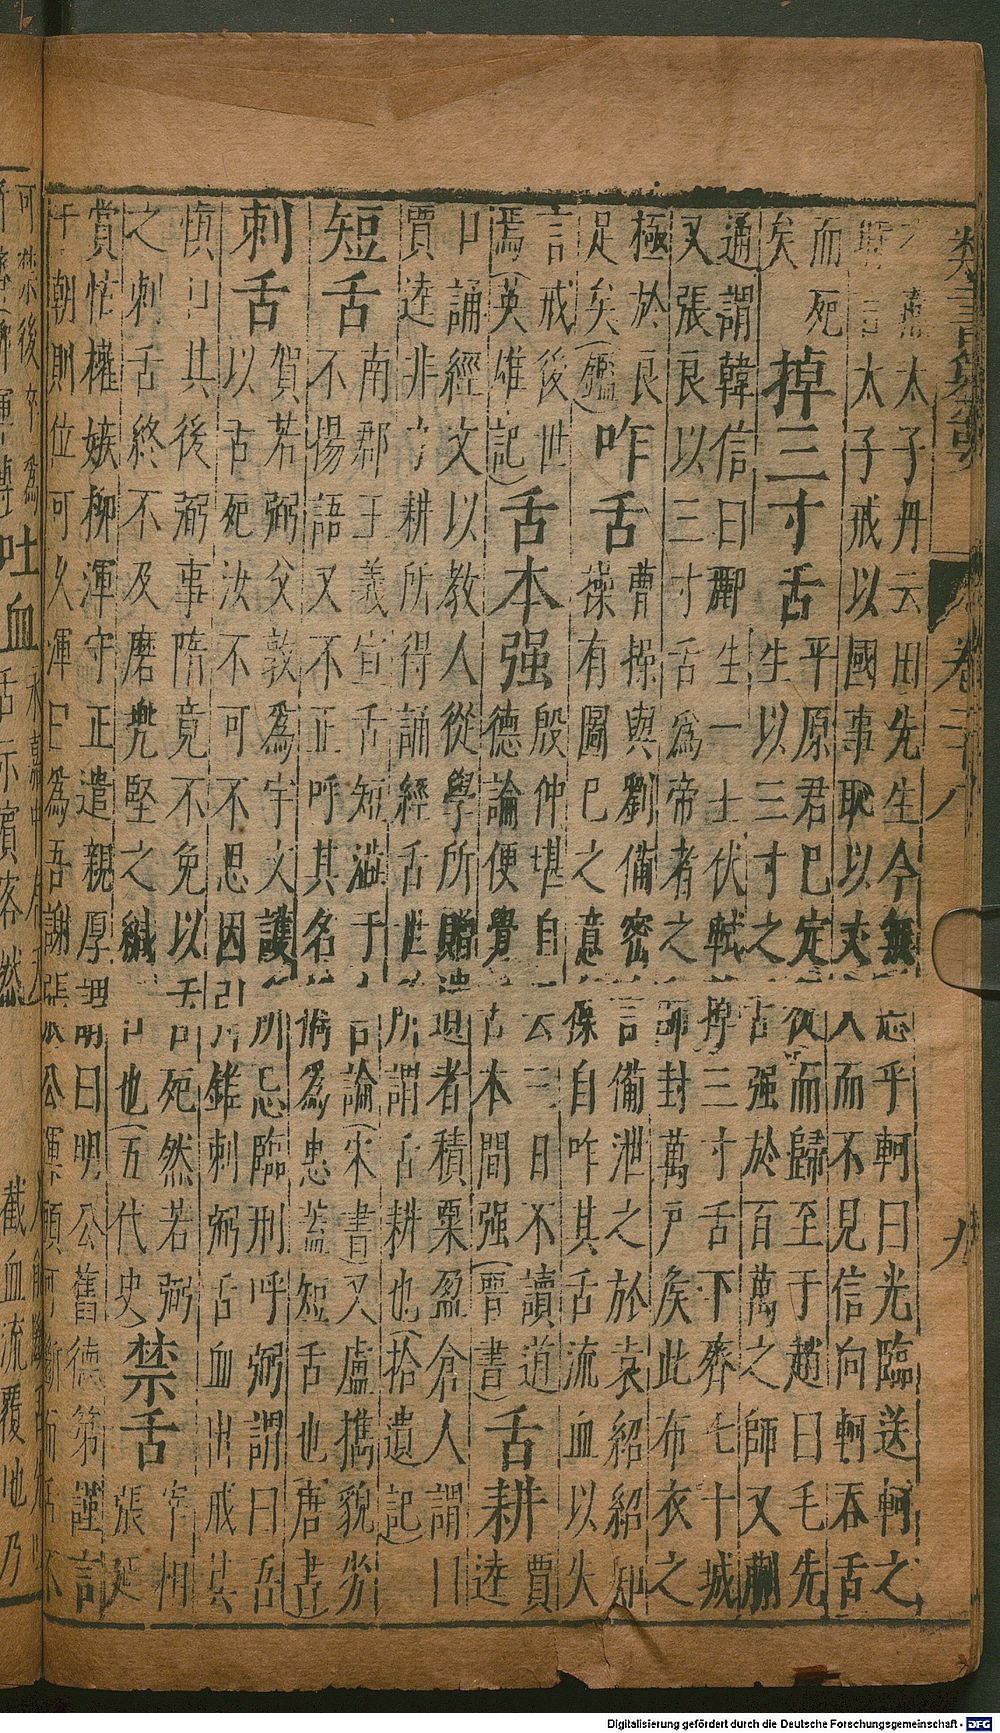 太子丹云田先生今無忘乎軻曰光臨送軻之
太子戒以國事耻以丈人而不見信向軻吞舌
而死
矣
掉三寸舌
平原君已定從而歸至于趙曰毛先
生以三寸之舌强於百萬之師又蒯
通謂韓信曰酈生一士伏軾掉三寸舌下齊七十城
又張良以三寸舌為帝者之師封萬戶矦此布衣之
極於良
足矣(鑑)
咋舌
曹操與劉備密言備泄之於袁紹紹知
操有圖己之意操自咋其舌流血以失
言戒後世
焉(英雄記)
舌本强
殷仲堪自云三日不讀道
德論便覺舌本間强(晉書)
舌耕
賈
逵
口誦經文以教人從學所贈遺者積粟盈倉人謂
賈逵非力耕所得誦經舌世所謂舌耕也(拾遺記)
短舌
南郡王義宣舌短澁于言論(宋書)又盧攜貌劣
不揚語又不正呼其名偹為患蓋短舌也唐書)
刺舌
賀若弼父敦為宇文護所忌臨刑呼弼謂曰吾
以舌死汝不可不思因引錐刺弼舌血出戒其
慎口其後弼事隋竟不免以舌死然若弼
之刺舌終不及磨兜堅之緘口也(五代史)
禁舌
宰相
張延
賞怙權嫉柳渾守正遣親厚謂明曰明公舊德第謹言
于朝則位可久渾曰為吾謝張公渾頭可斷而舌不
可禁後卒為
吐血
截血流覆地乃
類書纂要
卷三十八
九
Digitalisierung gefördert durch die Deutsche Forschungsgemeinschaft - DFG